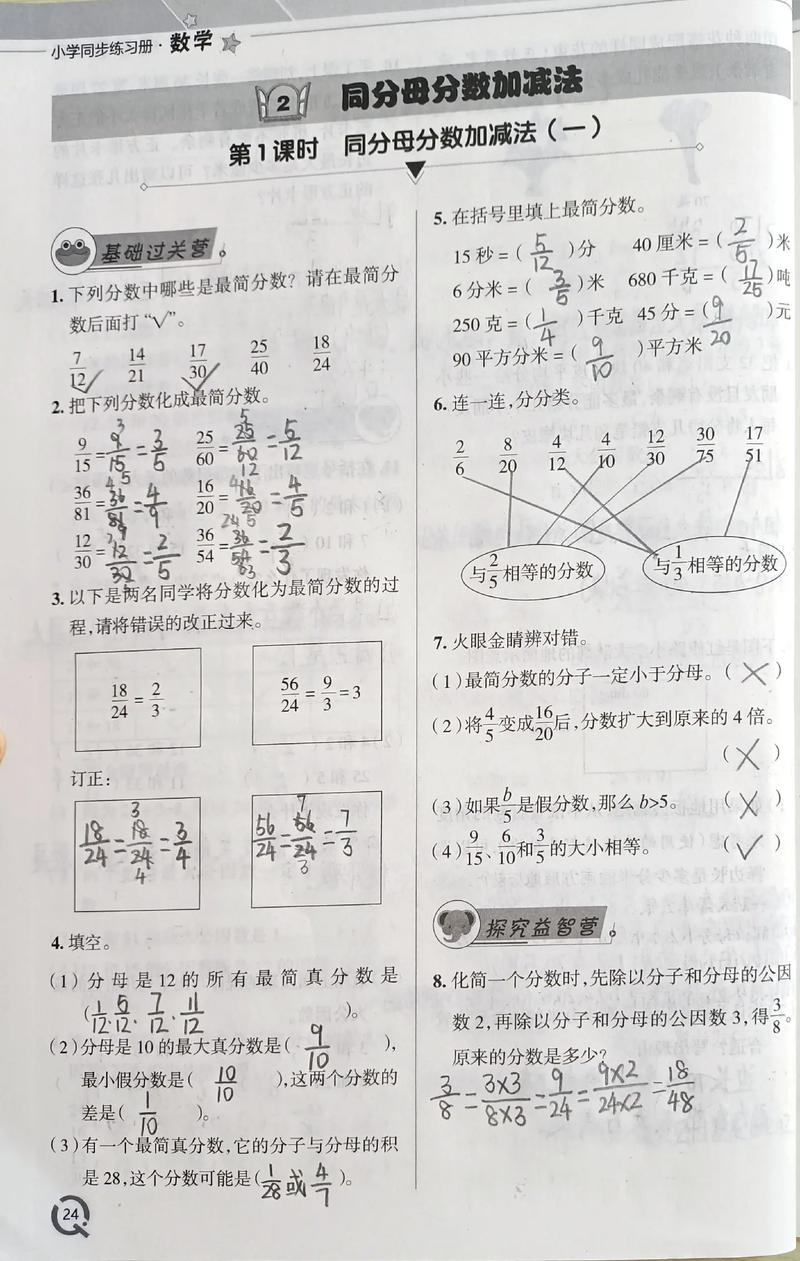 小学同步练习册·数学
2 同分母分数加减法
第1课时 同分母分数加减法(一)
基础过关营。
1. 下列分数中哪些是最简分数?请在最简分
数后面打“√”。
7/12 √ 14/21 17/30 √ 25/40 18/24
2. 把下列分数化成最简分数。
9/15=9/15=3/5 25/60=25/60=5/12
36/81=36/81=4/9 16/20=16/20=4/5
12/30=12/30=2/5 36/54=36/54=2/3
3. 以下是两名同学将分数化为最简分数的过
程,请将错误的改正过来。
18/24=2/3 56/24=9/3=3
订正:
18/24=18/24=3/4 56/24=56/24=7/3
4. 填空。
(1)分母是12的所有最简真分数是
(1/12.5/12.7/12.11/12)。
(2)分母是10的最大真分数是(9/10),
最小假分数是(10/10),这两个分数的
差是(1/10)。
(3)有一个最简真分数,它的分子与分母的积
是28,这个分数可能是(1/28或4/7)。
24
5. 在括号里填上最简分数。
15秒=(5/12)分 40厘米=(2/5)米
6分米=(3/5)米 680千克=(17/25)吨
250克=(1/4)千克 45分=(9/20)元
90平方分米=(9/10)平方米
6. 连一连,分分类。
2/6 8/20 4/12 4/10 12/30 30/75 17/51
与2/5相等的分数 与1/3相等的分数
7. 火眼金睛辨对错。
(1)最简分数的分子一定小于分母。(×)
(2)将4/5变成16/20后,分数扩大到原来的4倍。
(×)
(3)如果b/5是假分数,那么b>5。(×)
(4)9/15、6/10和3/5的大小相等。(√)
探究益智营。
8. 化简一个分数时,先除以分子和分母的公因
数2,再除以分子和分母的公因数3,得3/8。
原来的分数是多少?
3/8=3×3/8×3=9/24=9×2/24×2=18/48